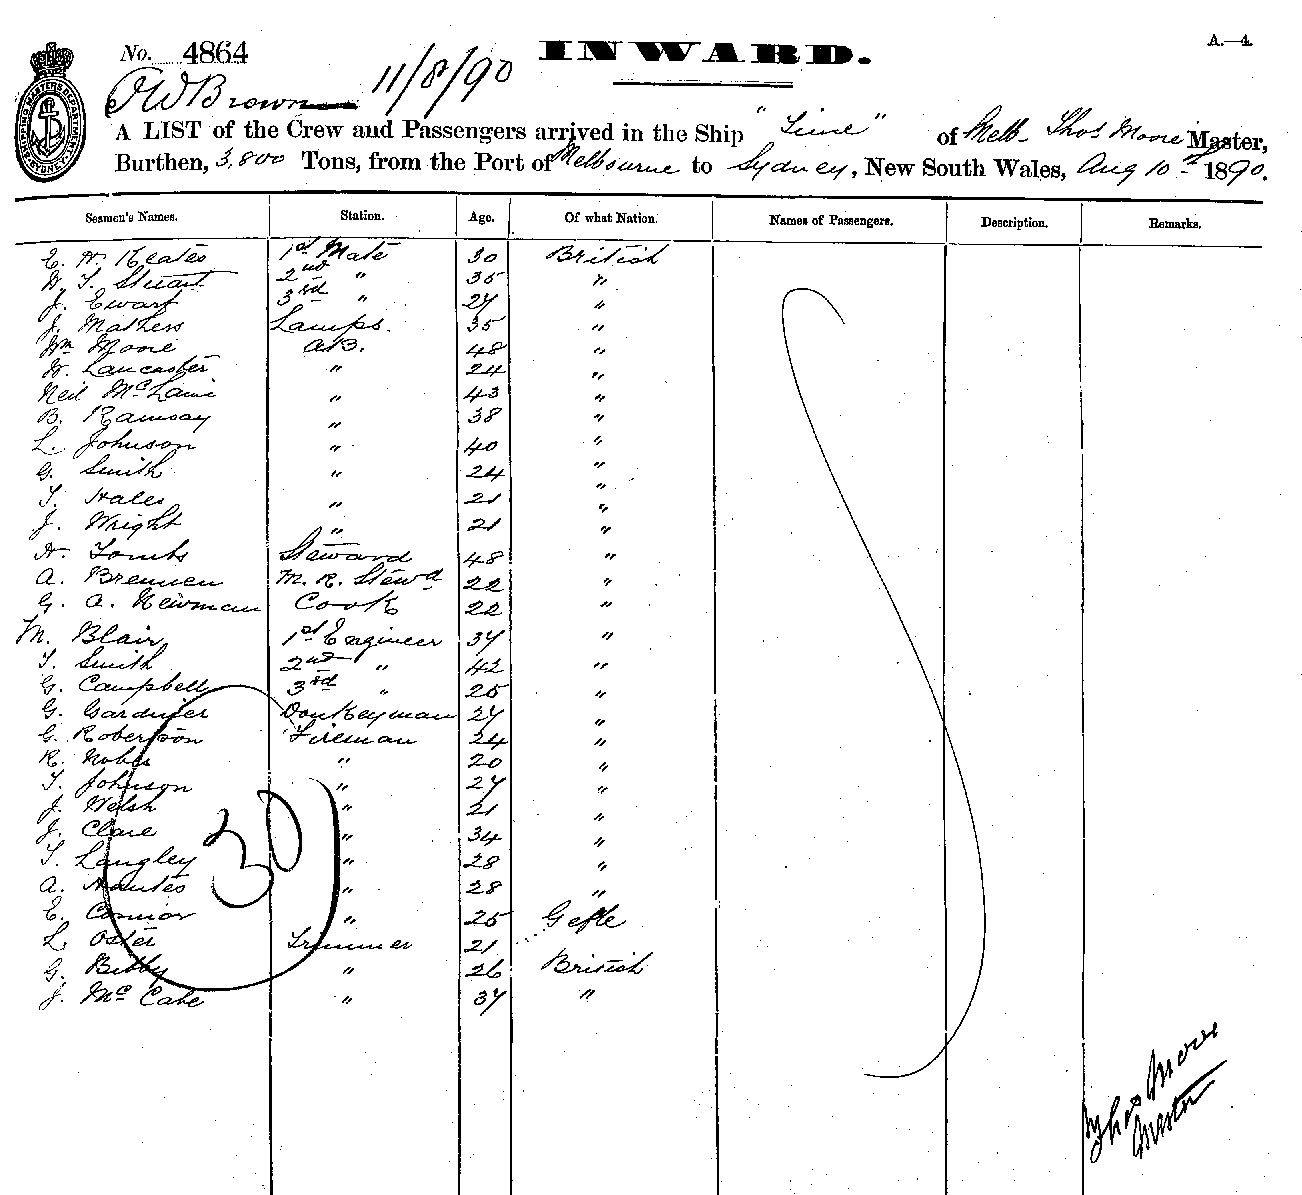 A.—4.
No. 4864
INWARD.
11/8/90
Brown
A LIST of the Crew and Passengers arrived in the Ship "Time" of Melb. Thos Moore Master,
Burthen, 3,800 Tons, from the Port of Melbourne to Sydney, New South Wales, Aug 10th 1890.
Seamen's Names. Station. Age. Of what Nation. Names of Passengers. Description. Remarks.
E. H. Keates 1st Mate 30 British
T. Stuart 2nd " 35 "
J. Ewart 3rd " 27 "
J. Mathers Lamps. 35 "
Wm Moore A.B. 48 "
W. Lancaster " 24 "
Neil 43 "
B. Ramsay " 38 "
L. Johnson " 40 "
G. Smith " 24 "
T. Hales " 21 "
J. Wright " 21 "
H. Tombs Steward 48 "
A. Brennen M. R. Stewd 22 "
G. A. Newman Cook 22 "
M. Blair 1st Engineer 37 "
T. Smith 2nd " 42 "
G. Campbell 3rd " 25 "
G. Gardner Donkeyman 27 "
G. Robertson Fireman 24 "
R. " 20 "
T. Johnson " 27 "
J. Welsh " 21 "
J. Clare " 34 "
T. Langley " 28 "
A. " 28 "
E. Connor " 25 Gefle
L. Oster Trimmer 21
G. Bibby " 26 British
J. McCabe " 37 "
30
Thos Moore
Master